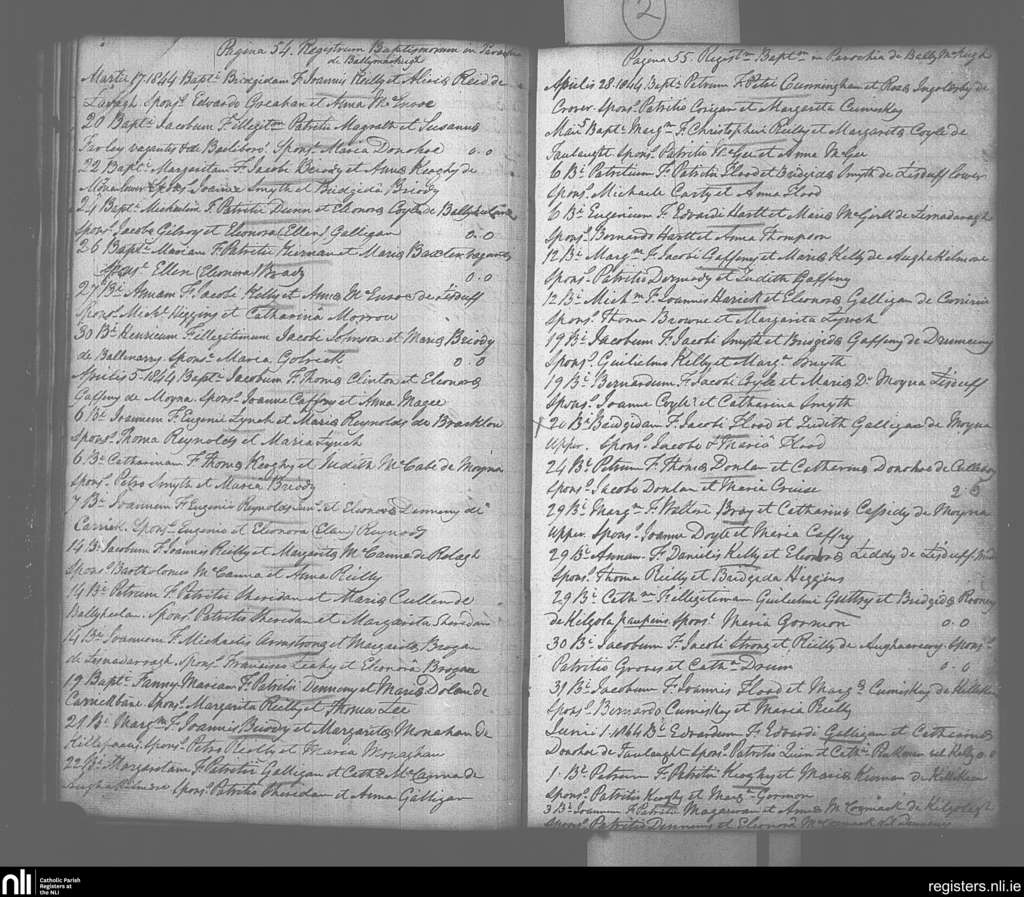 2
Pagina 54. Registrum Baptismorum in Parochia
de Ballymachugh
Martii 17. 1844 Bapt. Bridgidam F. Joannis Reilly et Aliciæ Reid de
Spons. Edvardo et Anna
20 Bapt. Jacobum F. illegitm Patritii Magrath et Susannæ
Farley vagantis de Spons. Maria Donohoe 0 . 0
22 Bapt. Margaritam F. Jacobi Briody et Annæ Keoghy de
Spons. Joanne Smyth et Bridgida Briody
24 Bapt. F. Patritii Dunn et Eleonoræ Coyle de
Spons. Jacobo Gilroy et Eleonora (Ellen) Galligan 0 . 0
26 Bapt. Mariam F. Patritii Kiernan et Mariæ Baxter vagantis
Spons. Ellen (Eleonora) Brady 0 . 0
27 Bt. Annam F. Jacobi Kelly et Annæ de Lisduff
Spons. Michl. Higgins et Catharina Morrow
30 Bt. Henricum F. illegitimum Jacobi Jonson et Mariæ Briody
de Ballinarry. Spons. Maria 0 . 0
Aprilis 5. 1844 Bapt. Jacobum F. Thomæ Clinton et Eleonoræ
Gaffeny de Moyna. Spons. Joanne Caffry et Anna Magee
6 Bt. Joannem F. Eugenii Lynch et Mariæ Reynolds de Bracklon
Spons. Thoma Reynolds et Maria Lynch
6 Bt. Catharinam F. Thomæ Keoghy et Judith McCabe de Moyna
Spons. Petro Smyth et Maria Briody
7 Bt. Joannem F. Eugenii Reynolds et Eleonoræ Denneny de
Carrick. Spons. Eugenio et Eleonora Reynolds
14 Bt. Jacobum F. Joannis Reilly et Margaritæ McCanna de
Spons. Bartholomeo McCanna et Anna Reilly
14 Bt. Petrum F. Patritii Sheridan et Mariæ Cullen de
Ballyheelan. Spons. Patritio Sheridan et Margarita Sheridan
14 Bt. Joannem F. Michaelis Armstrong et Margaritæ Brogan
de Lisnadarragh. Spons. Francisco Leahy et Eleonora Brogan
19 Bapt. Fanny Mariam F. Patritii Denneny et Mariæ Dolan de
Carrickbane Spons. Margarita Reilly et Thoma Lee
21 Bt. Margm. F. Joannis Briody et Margaritæ Monahan de
Spons. Petro Reilly et Maria Monaghan
22 Bt. Margaritam F. Patritii Galligan et Cathæ McCanna de
Spons. Patritio Sheridan et Anna Galligan
Pagina 55. Registm Baptm in Parochia de BallyMcHugh
Aprilis 28. 1844 Bapt. Petrum F. Petri Cunningham et Rosæ Ingoldsby de
Crover. Spons. Patritio Corigan et Margarita Cumiskey
Maii 5 Bapt. Margm. F. Christopheri Reilly et Margaritæ Coyle de
Taulaught. Spons. Patritio McGee et Anna McGee
6 Bt. Patritium F. Patritii Flood et Bridgidæ Smyth de Lisduff lower
Spons. Michaele Carty et Anna Flood
6 Bt. Eugenium F. Edvardi Hartt et Mariæ McGirll de Lisnadaragh
Spons. Bernardo Hartt et Anna Thompson
12 Bt. Margm. F. Jacobi Gaffeny et Mariæ Kelly de Aughakilmore
Spons. Patritio Dermody et Judith Gaffeny
12 Bt. Michm. F. Joannis et Eleonoræ Galligan de
Spons. Thoma Browne et Margarita Lynch
19 Bt. Jacobum F. Jacobi Smyth et Bridgidæ Gaffeny de
Spons. Guilielmo Kelly et Marga. Smyth
19 Bt. Bernardum F. Jacobi Coyle et Mariæ Do. Moyna Lisduff
Spons. Joanne Coyle et Catharina Smyth
X 20 Bt. Bridgidam F. Jacobi Flood et Judith Galligan de Moyna
Upper. Spons. Jacobo & Maria Flood
24 Bt. Petrum F. Thomæ Donlan et Catherinæ Donohoe de
Spons. Jacobo Donlan et Maria Cruise 2 " 5
29 Bt. Margm. F. Walteri Bray et Catharinæ Cassidy de Moyna
Upper. Spons. Joanne Doyle et Maria Caffry
29 Bt. Annam F. Danielis Kelly et Eleonoræ Leddy de Lisduff
Spons. Thoma Reilly et Bridgida Higgins
29 Bt. Cathm. F. illegitimam Guilielmi et Bridgidæ Rooney
de Kilgola pauperis Spons. Maria Gormon 0 . 0
30 Bt. Jacobum F. Jacobi Strong et Reilly de Spons.
Patritio et Catha. Drum 0 . 0
31 Bt. Jacobum F. Joannis Flood et Margæ Cumiskey de
Spons. Bernardo Cumiskey et Maria Reilly
Junii 1. 1844 Bt. Edvardum F. Edvardi Galligan et Catharinæ
Donohoe de Taulaught Spons. Patritio et Catha. vel Kelly 0 . 0
1. Bt. Petrum F. Patritii Keoghy et Mariæ Kiernan de
Spons. Patritio Keoghy et Marga. Gormon
3 Bt. Joannem F. Patritii Magauran et Annæ McCormack de
Spons. Patritio Dennenny et Eleonora McCormack
nli
Catholic Parish
Registers at
the NLI
registers.nli.ie